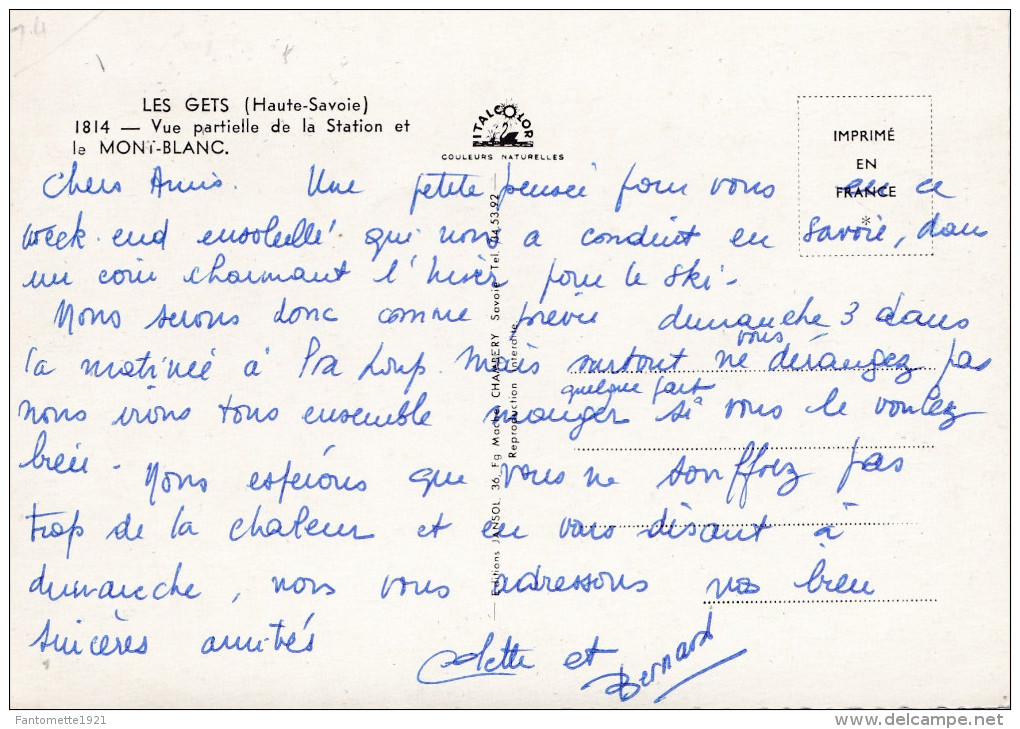 LES GETS (Haute-Savoie)
1814 — Vue partielle de la Station et
le MONT-BLANC.
ITALCOLOR
COULEURS NATURELLES
IMPRIMÉ
EN
FRANCE
*
Chers Amis. Une petite pensée pour vous en ce
week-end ensoleillé qui nous a conduit en Savoie, dans
un coin charmant l'hiver pour le ski-
Nous serons donc comme prévu dimanche 3 dans
la matinée à Pa Loup. Mais surtout ne vous dérangez pas
nous irons tous ensemble manger quelque part si vous le voulez
bien - Nous espérons que vous ne souffrez pas
trop de la chaleur et en vous disant à
dimanche, nous vous adressons nos bien
sincères amitiés
Colette et Bernard
— Editions JANSOL 36, Fg Maché CHAMBÉRY Savoie Tel. 04.53.92 —
Reproduction interdite
Fantomette1921
www.delcampe.net